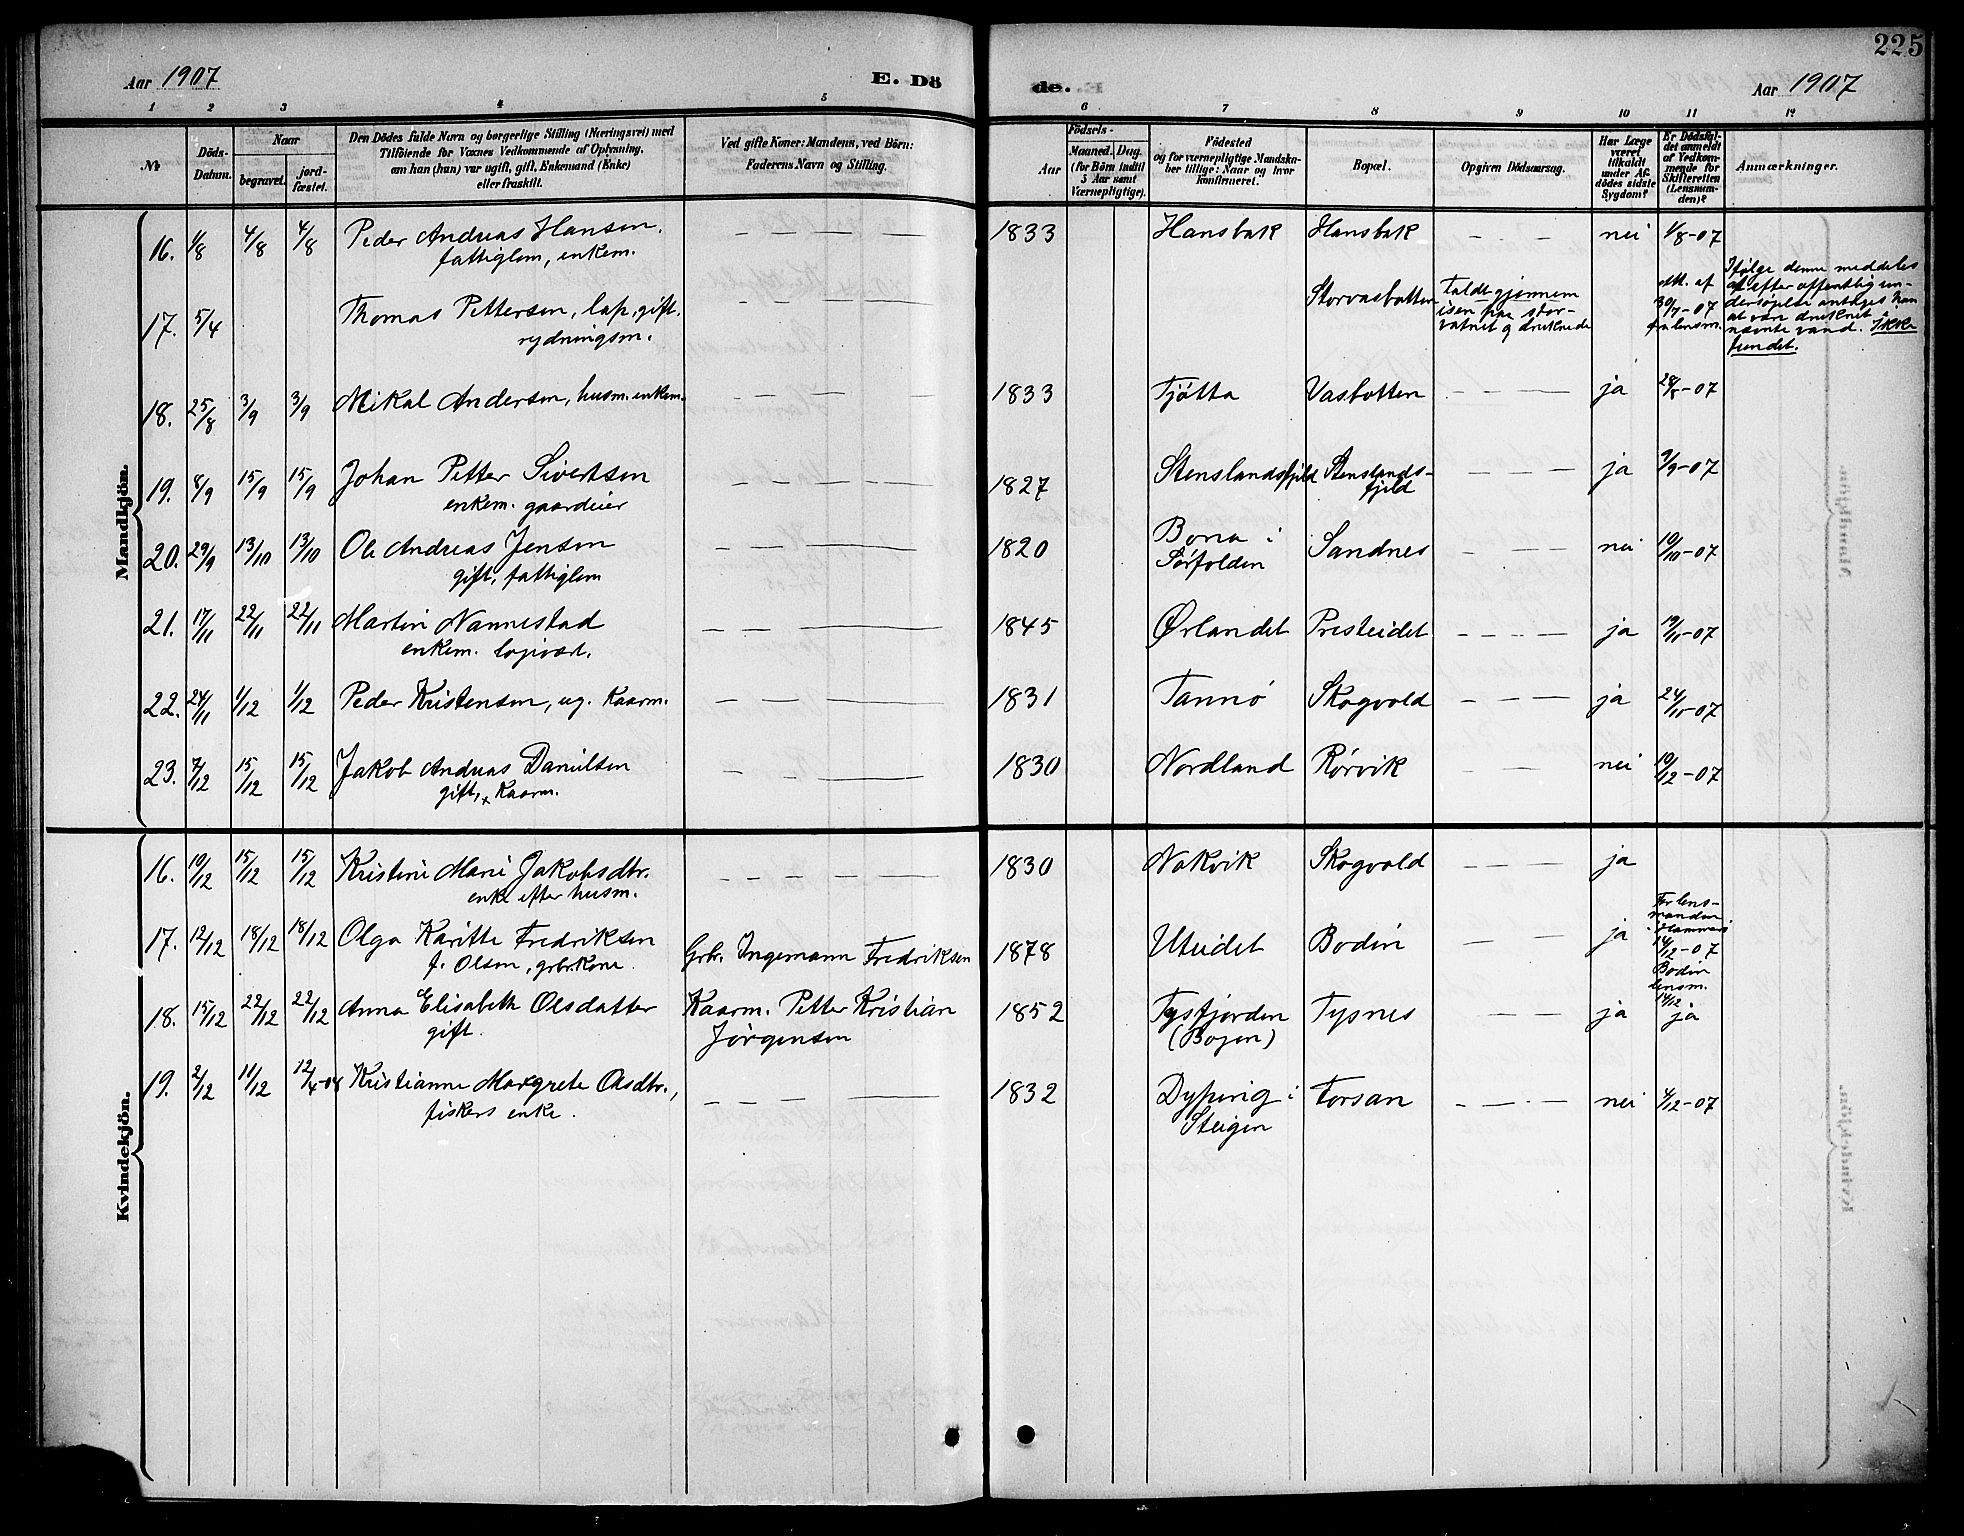 225
Aar 1907 E. Dö de. Aar 1907
1 2 3 4 5 6 7 8 9 10 11 12
№ Döds-Datum. Naar begravet. jord-fæstet.
Den Dödes fulde Navn og borgerlige Stilling (Næringsvei) med
Tilföiende for Voxnes Vedkommende af Oplysning,
om han (hun) var ugift, gift, Enkemand (Enke)
eller fraskilt.
Ved gifte Koner: Mandens, ved Börn:
Faderens Navn og Stilling.
Födsels-
Aar Maaned. Dag.
(for Börn indtil
5 Aar samt
Værnepligtige).
Födested
og for værnepligtige Mandska-
ber tillige: Naar og hvor
konfirmeret.
Bopæl.
Opgiven Dödsaarsag.
Har Læge
været
tilkaldt
under Af-
dödes sidste
Sygdom?
Er Dödsfal-
det anmeldt
af Vedkom-
mende for
Skifteretten
(Lensman-
den)?
Anmærkninger.
Mandkjön.
16. 1/8 4/8 4/8 Peder Andreas Hansen, — — — — 1833 Hansbak Hansbak — — — nei 1/8-07
fattiglem, enkem.
17. 5/4 Thomas Pettersen, lap, gift, — — — — Storvasbotten Faldt gjennem
rydningsm.
isen paa stor-
vatnet og druknede
30/7-07
Ifølge denne meddeles
at efter offentlig un-
dersøgelse antages han
at være druknet i
nævnte vand. Ikke
fundet.
18. 25/8 3/9 3/9 Mikal Andersen, husm. enkem. — — — — 1833 Tjøtta Vasbotten — — — ja 28/8-07
19. 8/9 15/9 15/9 Johan Petter Sivertsen — — — — 1827 Stenslandsfjeld Stenslands-
fjeld — — — ja 9/9-07
enkem. gaardeier
20. 29/9 13/10 13/10 Ole Andreas Jensen — — — 1820 Bona i
Sørfolden Sandnes — — — nei 10/10-07
gift, fattiglem
21. 17/11 22/11 22/11 Martin Nannestad — — — 1845 Ørlandet Presteidet — — — ja 19/11-07
enkem. logivært.
22. 24/11 1/12 1/12 Peder Kristensen, ug. Kaarm. — — — 1831 Tannø Skogvold — — — ja 24/11-07
23. 7/12 15/12 15/12 Jakob Andreas Danielsen — — — 1830 Nordland Rørvik — — nei 10/12-07
gift, Kaarm.
Kvindekjön.
16. 10/12 15/12 15/12 Kristine Marie Jakobsdtr. — — — — 1830 Nakvik Skogvold — — — ja
enke efter husm.
17. 12/12 18/12 18/12 Olga Karitte Fredriksen Grbr. Ingemann Fredriksen 1878 Uteidet Bodin — — ja
f. Olsen, grbr.kone.
For lens-
manden
i Hammerø
14/12-07
Bodin
lensm.
14/12
18. 15/12 22/12 22/12 Anna Elisabeth Olsdatter Kaarm. Petter Kristian 1852 Tysfjorden Tysnes — — ja ja
gift. Jørgensen (Bogen)
19. 2/12 11/12 12/4-08 Kristianne Margrete Olsdtr., — — — — 1832 Dyping i Forsan — — — nei 4/12-07
fiskers enke. Steigen